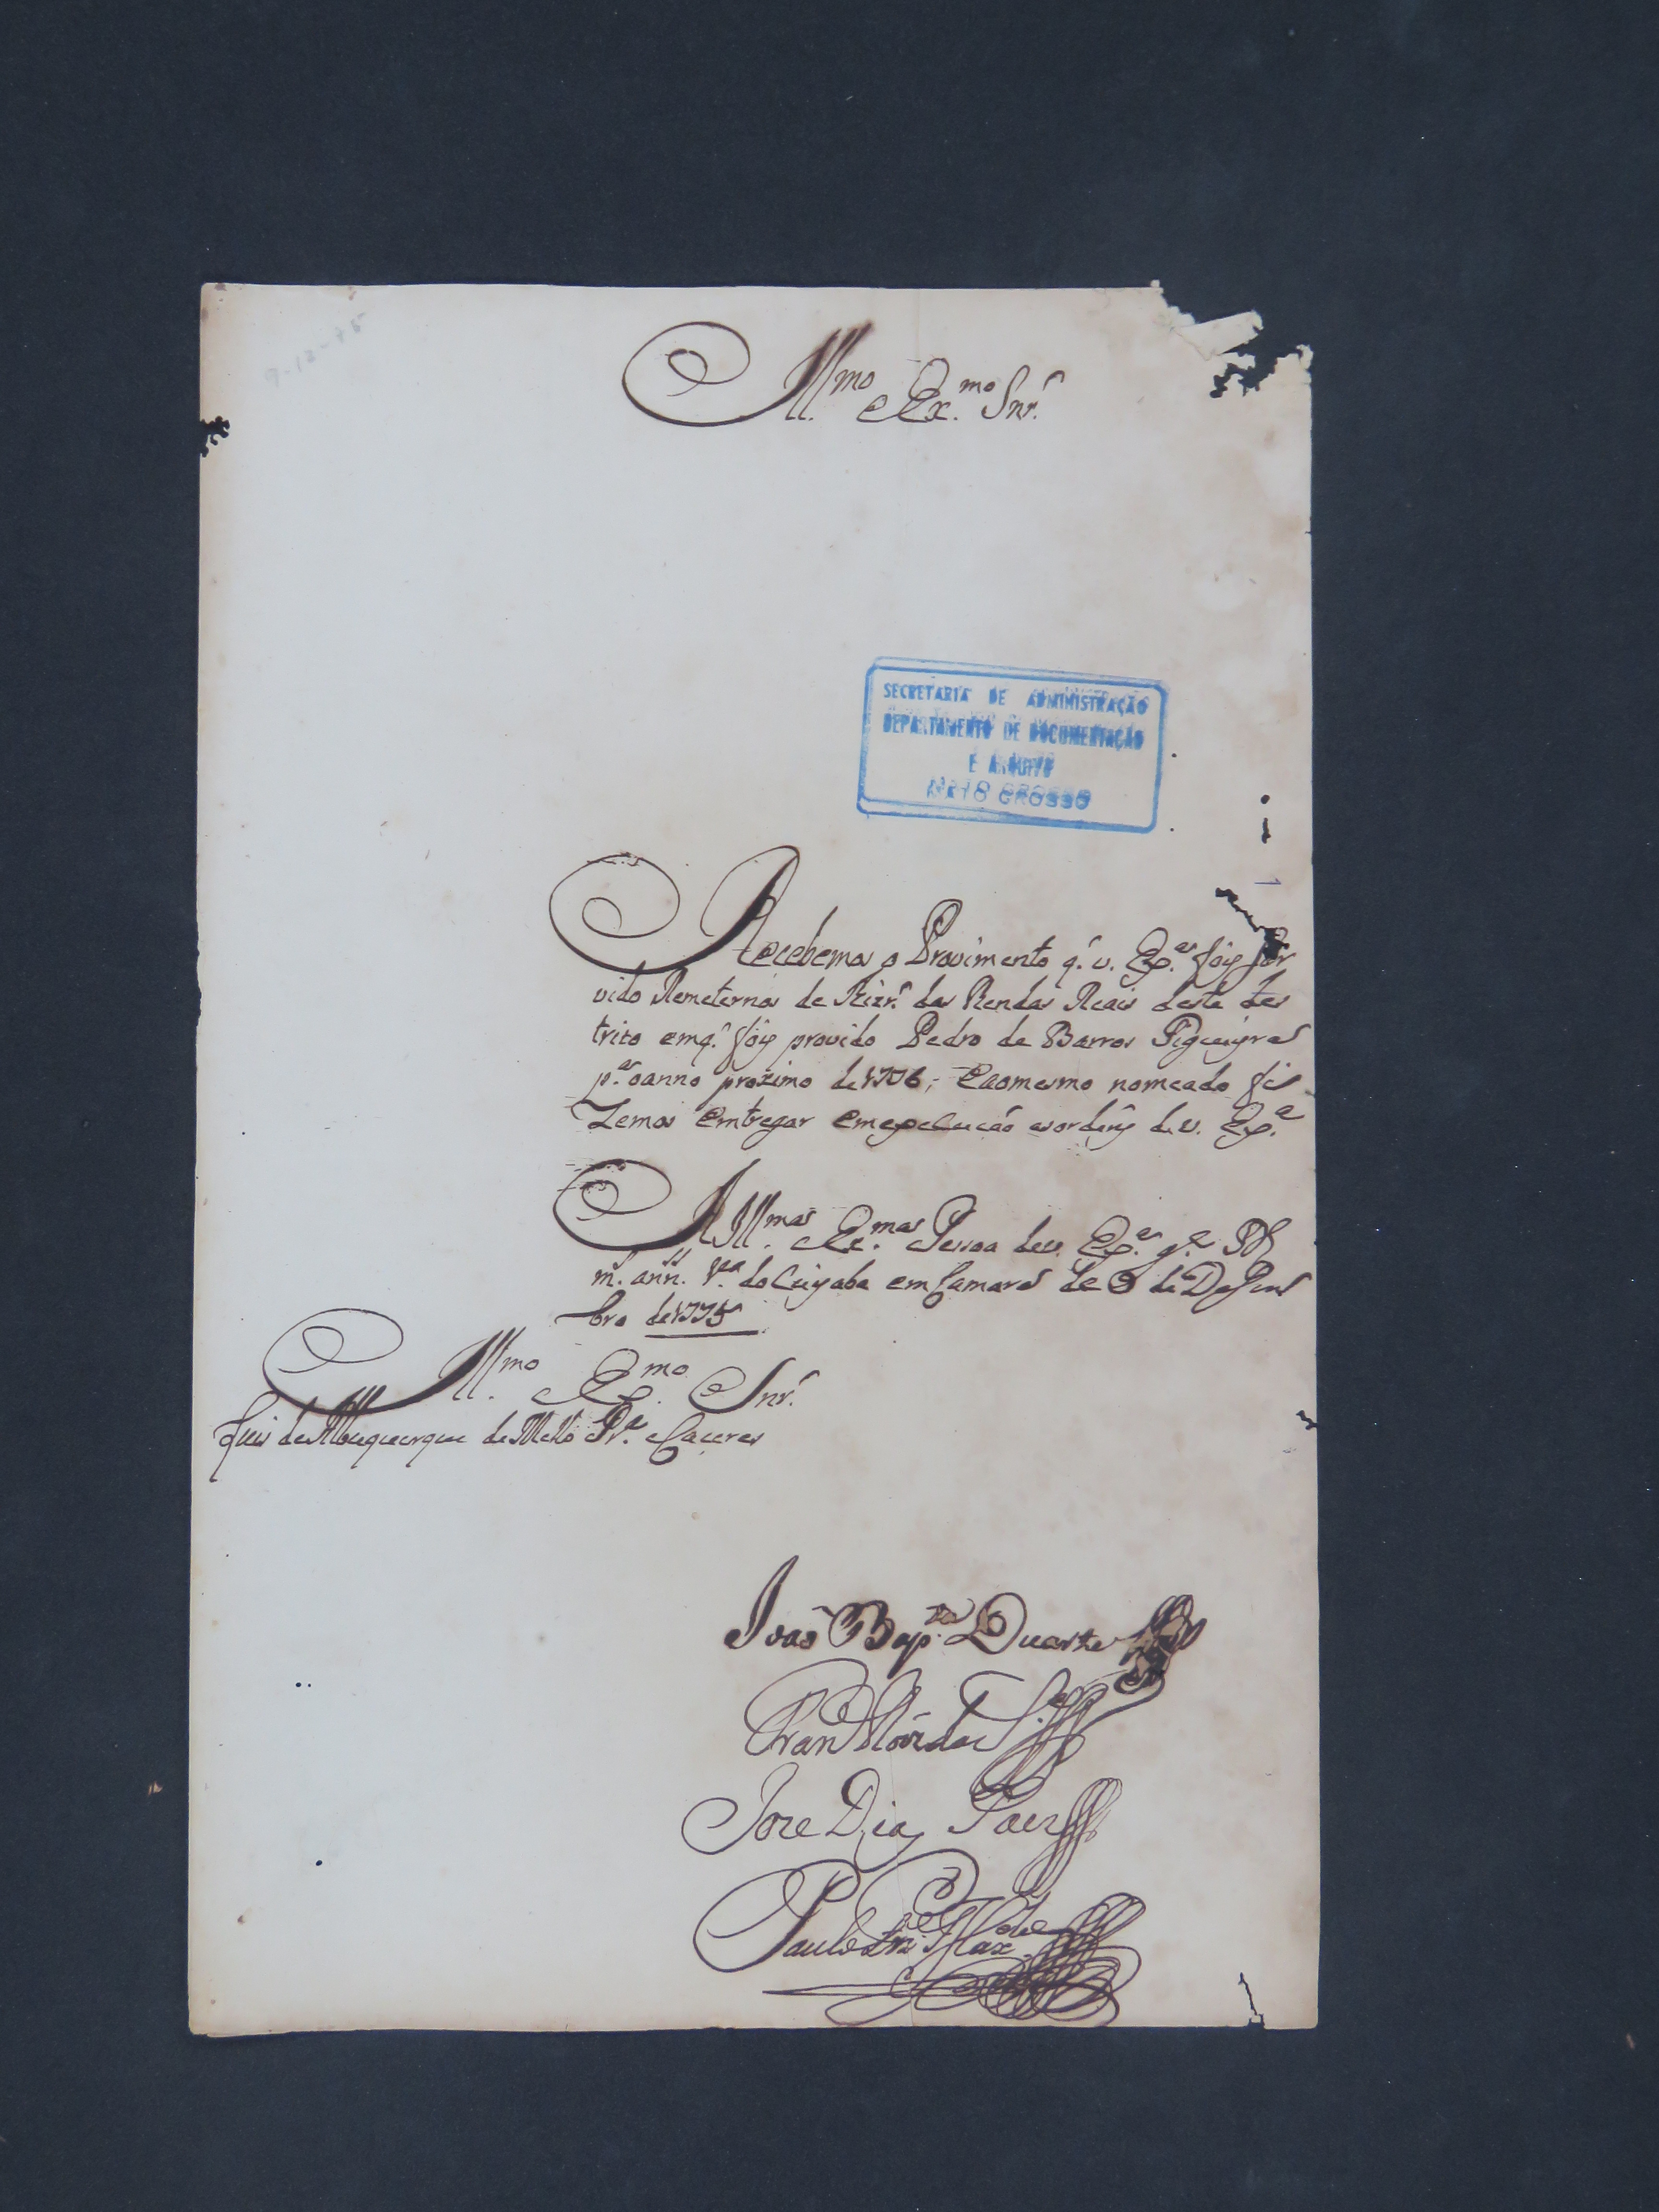 Ill.mo e Ex.mo Snr.
SECRETARIA DE ADMINISTRAÇÃO
DEPARTAMENTO DE DOCUMENTAÇÃO
E ARQUIVO
MATO GROSSO
Recebemos o Provimento q. v. Ex.ca foy Ser
vido Remeternos de das Rendas Reais deste des
trito emq. foy provido Pedro de Barros Figueyra
p.a oanno proximo de 1776; Eaomesmo nomeado fi
zemos Entregar emexecução asordeñs de v. Ex.a
A Ill.ma e Ex.ma Pessoa dev. Ex.ca g.e Ds
m. ann. V.a do Cuyaba em Camara de 9 de Dezem
bro de 1775
Ill.mo e Ex.mo Snr.
Luis de Albuquerque de Mello Pr.a e Caceres
João Bap.ta Duarte
José Dias Paes
Paulo